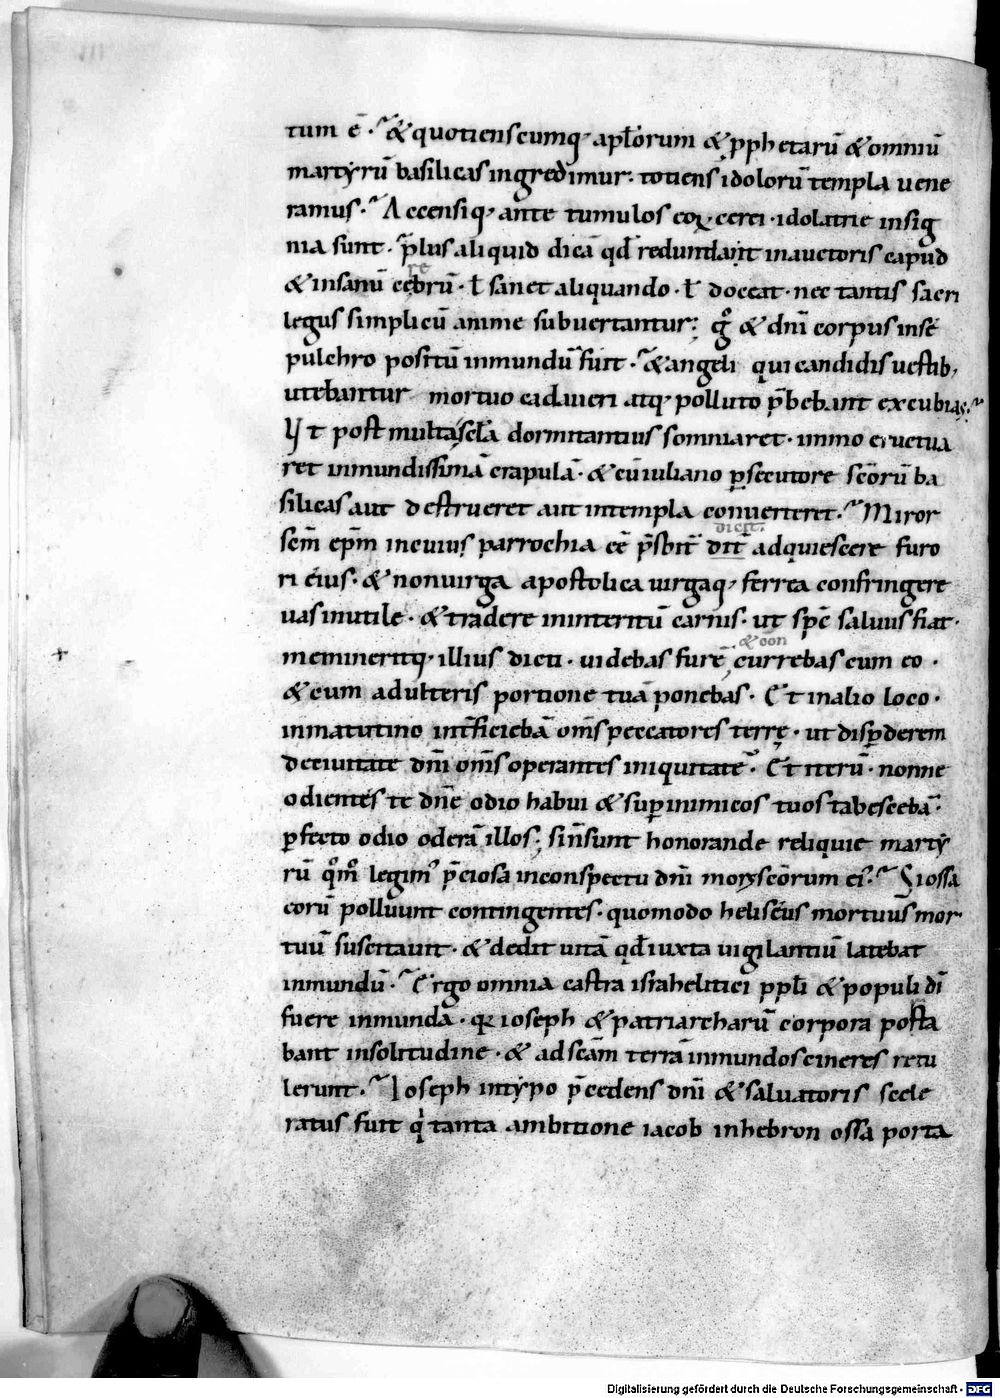 tum ē. & quotienscumq; apl̄orum & ꝓphetarū & omniū
martyrū basilicas ingredimur. totiens idolorū templa uene
ramus. Accensiq; ante tumulos eoꝝ cerei. idolatrie insig
nia sunt. plus aliquid dicā qđ redundant inauctoris capud
& insanū cerebrū. ł sanet aliquando. ł doceat. nec tantis sacri
legus simpliciū anime subuertantur; & dn̄i corpus insé
pulchro positū inmundū fuit. & angeli qui candidis uestib;
utebantur mortuo cadaueri atq; polluto p̄bebant excubias.
Ut post multa scl̄a dormitantius somniaret. immo eructua
ret inmundissimā crapulā. & cū iuliano ꝑsecutore scōrū ba
silicas aut destrueret aut intempla conuerteret. Miror
scm̄ ep̄m incuius parrochia eē p̄sbit̄ dicit. adquiescere furo
ri eius. & nonuirga apostolica uirgaq; ferrea confringere
uas inutile. & tradere ininteritū carnis. ut sp̄c saluus fiat.
memineritq; illius dicti. uidebas furē & con currebas cum eo.
& cum adulteris portione tuā ponebas. Et inalio loco.
inmatutino int̄ficiebā om̄s peccatores terrę. ut disꝑderem
deciuitate dn̄i om̄s operantes iniquitatē. Et iterū. nonne
odientes te dn̄e odio habui & suꝑ inimicos tuos tabescebā.
ꝑfecto odio oderā illos; sin̄ sunt honorande reliquie marty
rū qm̄o legim᾽ p̄ciosa inconspectu dn̄i mors scōrum ei᾽. Si ossa
eorū polluunt contingentes. quomodo heliseus mortuus mor
tuū suscitauit. & dedit uitā qđ iuxta uigilantiū latebat
inmundū. Ergo omnia castra israhelitici ppl̄i & populi dī
fuere inmunda. ioseph & patriarcharū corpora porta
bant insolitudine. & ad scām terrā inmundos cineres retu
lerunt. Ioseph intypo p̄cedens dn̄i & saluatoris scele
ratus fuit q̇ tanta ambitione iacob inhebron ossa porta
Digitalisierung gefördert durch die Deutsche Forschungsgemeinschaft - DFG